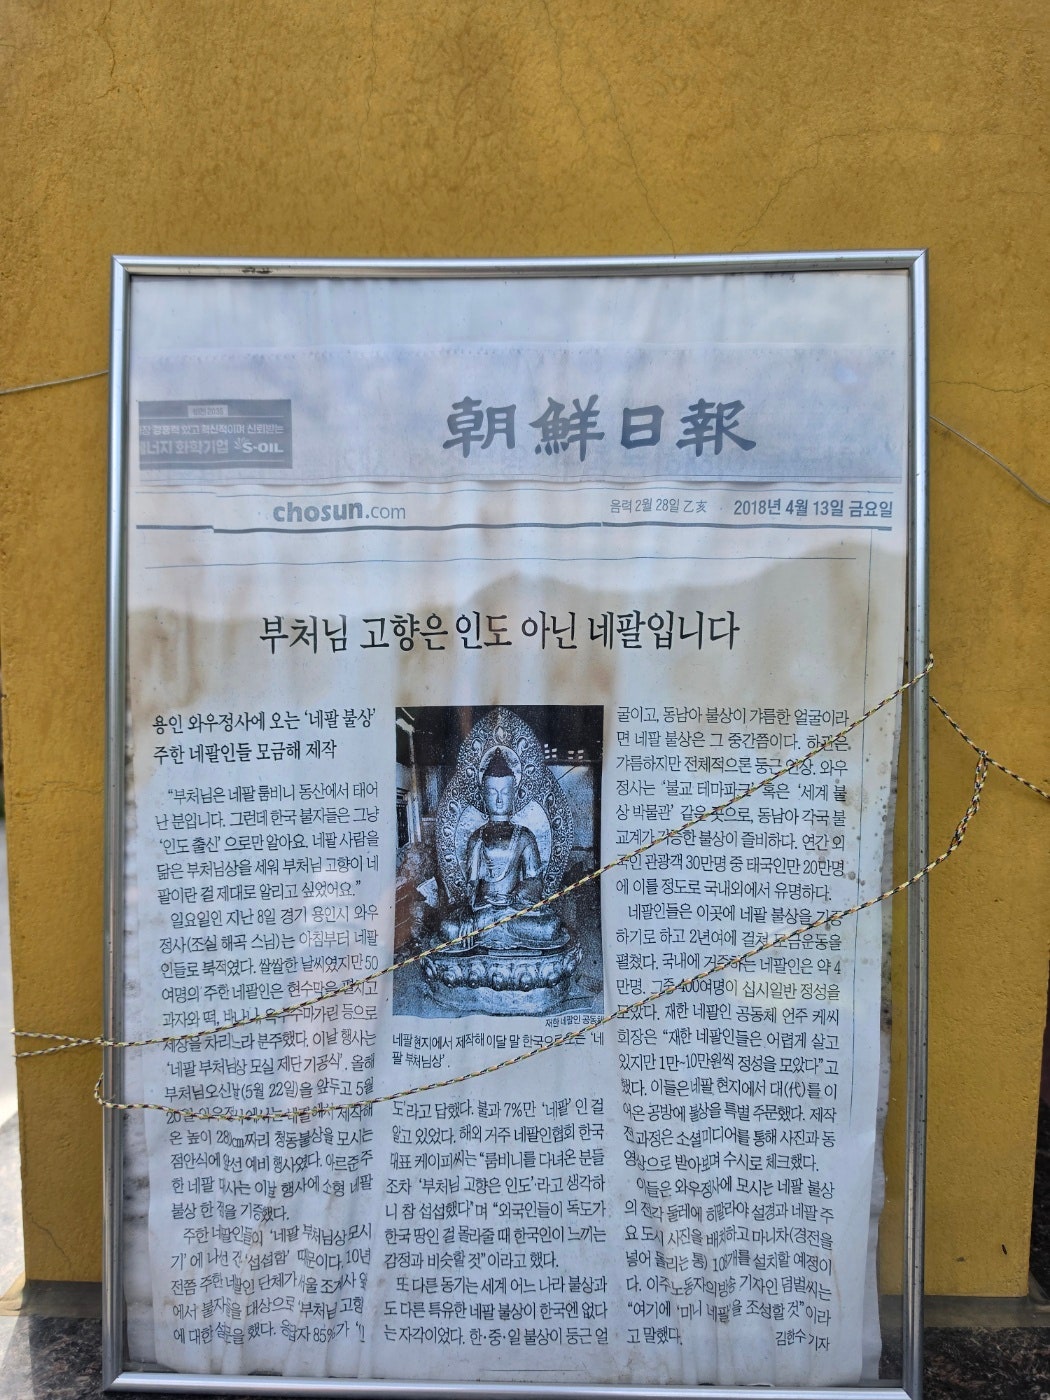 비전 2030
경쟁력 있고 혁신적이며 신뢰받는
에너지 화학기업 S-OIL
朝鮮日報
chosun.com
음력 2월 28일 乙亥
2018년 4월 13일 금요일
부처님 고향은 인도 아닌 네팔입니다
용인 와우정사에 오는 ‘네팔 불상’
주한 네팔인들 모금해 제작
“부처님은 네팔 룸비니 동산에서 태어
난 분입니다. 그런데 한국 불자들은 그냥
‘인도 출신’으로만 알아요. 네팔 사람을
닮은 부처님상을 세워 부처님 고향이 네
팔이란 걸 제대로 알리고 싶었어요.”
일요일인 지난 8일 경기 용인시 와우
정사(조실 해곡 스님)는 아침부터 네팔
인들로 북적였다. 쌀쌀한 날씨였지만 50
여명의 주한 네팔인은 현수막을 펼치고
과자와 떡, 바나나,
제상을 차리느라 분주했다. 이날 행사는
‘네팔 부처님상 모실 제단 기공식’. 올해
부처님오신날(5월 22일)을 앞두고 5월
20일 와우정사에서는 네팔에서 제작해
온 높이 짜리 청동불상을 모시는
점안식에 앞선 예비 행사였다. 아르준 주
한 네팔 대사는 이날 행사에 소형 네팔
불상 한 점을 기증했다.
주한 네팔인들이 ‘네팔 부처님상 모시
기’에 나선 건 ‘섭섭함’ 때문이다. 10년
전쯤 주한 네팔인 단체가 서울 조계사 앞
에서 불자들을 대상으로 부처님 고향
에 대한 설문을 했다. 응답자 85%가 ‘인
재한 네팔인 공동체
네팔 현지에서 제작해 이달 말 한국으로 오는 ‘네
팔 부처님상’.
도’라고 답했다. 불과 7%만 ‘네팔’인 걸
알고 있었다. 해외 거주 네팔인협회 한국
대표 케이피씨는 “룸비니를 다녀온 분들
조차 ‘부처님 고향은 인도’라고 생각하
니 참 섭섭했다”며 “외국인들이 독도가
한국 땅인 걸 몰라줄 때 한국인이 느끼는
감정과 비슷할 것”이라고 했다.
또 다른 동기는 세계 어느 나라 불상과
도 다른 특유한 네팔 불상이 한국엔 없다
는 자각이었다. 한·중·일 불상이 둥근 얼
굴이고, 동남아 불상이 갸름한 얼굴이라
면 네팔 불상은 그 중간쯤이다. 하관은
갸름하지만 전체적으론 둥근 인상. 와우
정사는 ‘불교 테마파크’ 혹은 ‘세계 불
상 박물관’ 같은 곳으로, 동남아 각국 불
교계가 기증한 불상이 즐비하다. 연간 외
국인 관광객 30만명 중 태국인만 20만명
에 이를 정도로 국내외에서 유명하다.
네팔인들은 이곳에 네팔 불상을 기증
하기로 하고 2년여에 걸쳐 모금운동을
펼쳤다. 국내에 거주하는 네팔인은 약 4
만명. 그중 400여명이 십시일반 정성을
모았다. 재한 네팔인 공동체 언주 케씨
회장은 “재한 네팔인들은 어렵게 살고
있지만 1만~10만원씩 정성을 모았다”고
했다. 이들은 네팔 현지에서 대(代)를 이
어온 공방에 불상을 특별 주문했다. 제작
전 과정은 소셜미디어를 통해 사진과 동
영상으로 받아보며 수시로 체크했다.
이들은 와우정사에 모시는 네팔 불상
의 전각 둘레에 히말라야 설경과 네팔 주
요 도시 사진을 배치하고 마니차(경전을
넣어 돌리는 통) 10개를 설치할 예정이
다. 이주노동자의방송 기자인 덤벌씨는
“여기에 ‘미니 네팔’을 조성할 것”이라
고 말했다.
김한수 기자